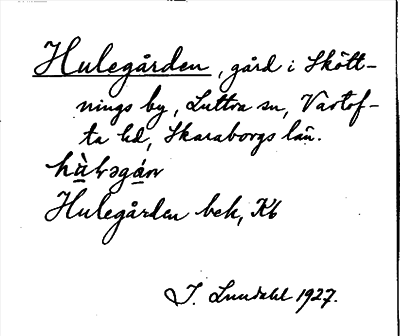 Hulegården, gård i Skött-
nings by, Luttra sn, Vartof-
ta hd, Skaraborgs län.
Hulegården bek, Kb
J. Lundahl 1927.